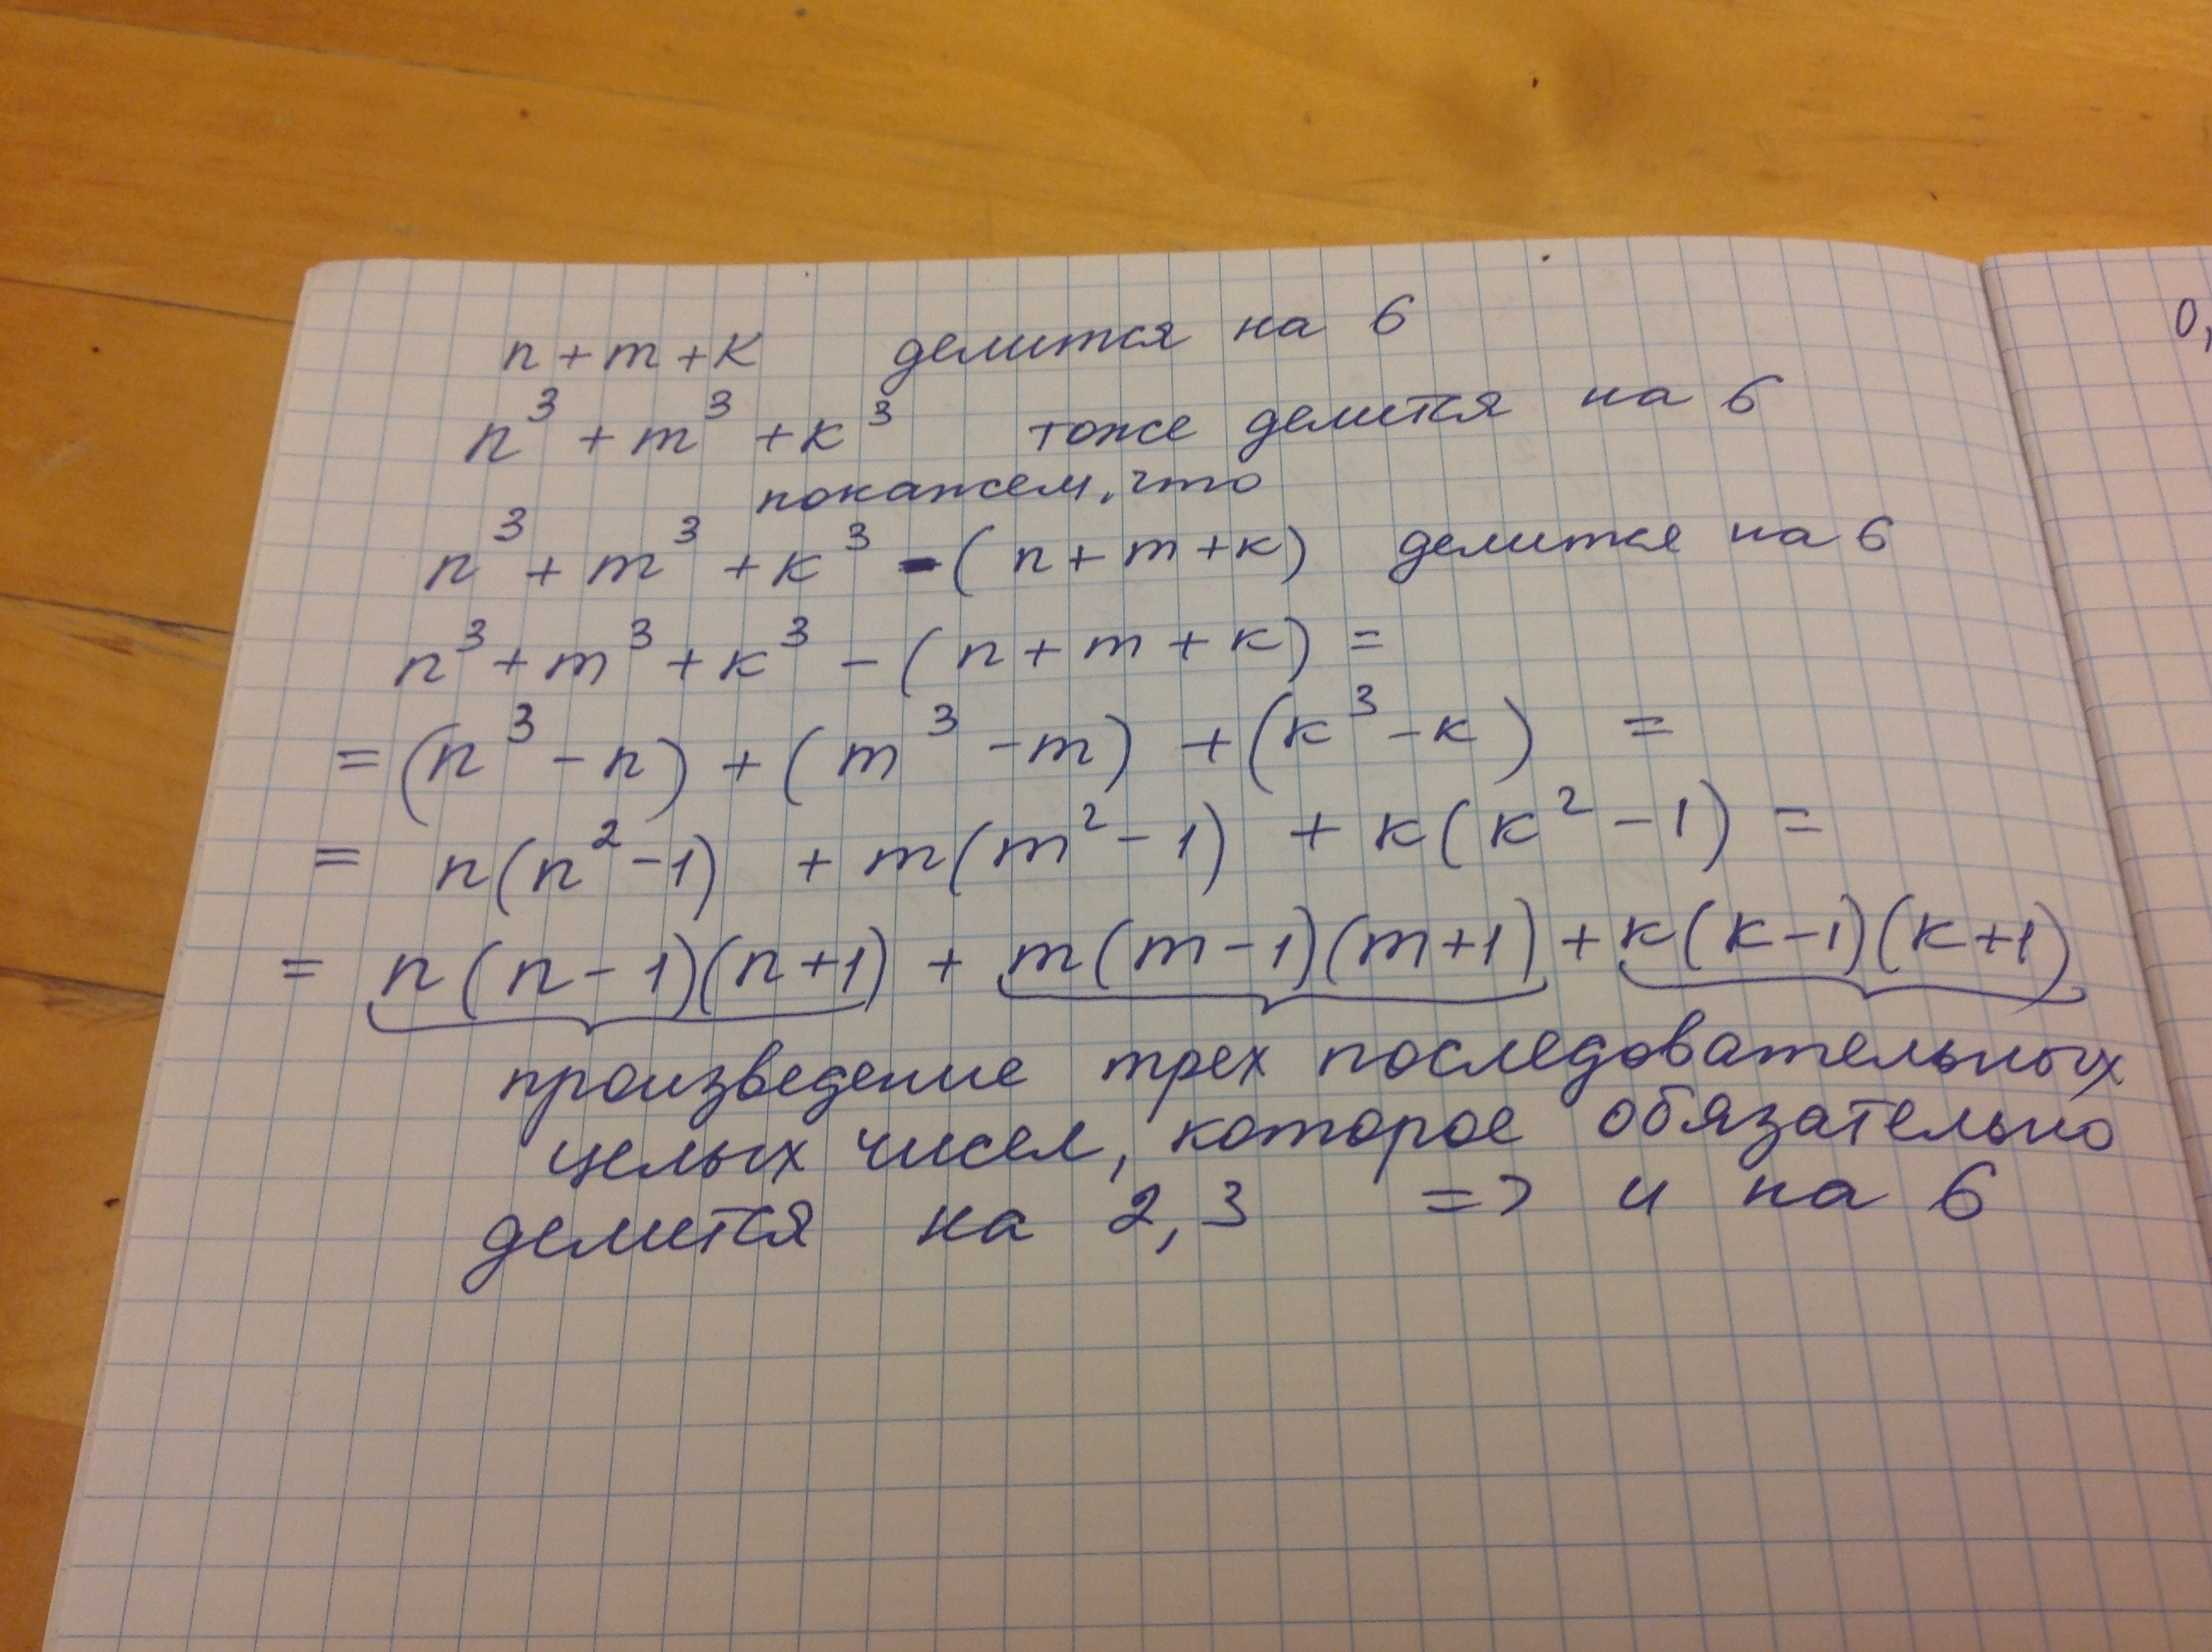 n + m + к делится на 6
n³ + m³ + к³ тоже делится на 6
покажем, что
n³ + m³ + к³ - (n + m + к) делится на 6
n³ + m³ + к³ - (n + m + к) =
= (n³ - n) + (m³ - m) + (к³ - к) =
= n(n² - 1) + m(m² - 1) + к(к² - 1) =
= n(n - 1)(n + 1) + m(m - 1)(m + 1) + к(к - 1)(к + 1)
произведение трех последовательных
целых чисел, которое обязательно
делится на 2, 3 => и на 6
0,